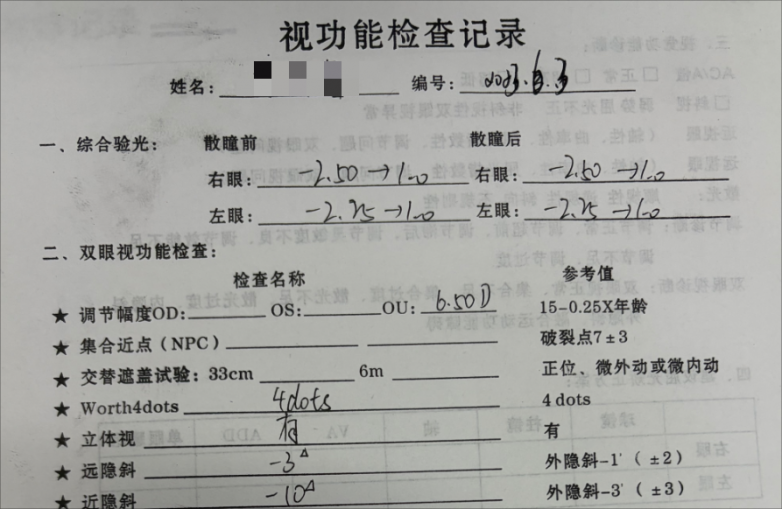 视功能检查记录
姓名: 编号: 2023.6.3
一、综合验光: 散瞳前 散瞳后
右眼: -2.50→1.0 右眼: -2.50→1.0
左眼: -2.75→1.0 左眼: -2.75→1.0
二、双眼视功能检查:
检查名称 参考值
★ 调节幅度OD: OS: OU: 6.50D 15-0.25X年龄
★ 集合近点（NPC） 破裂点7±3
★ 交替遮盖试验: 33cm 6m 正位、微外动或微内动
★ Worth4dots 4dots 4 dots
★ 立体视 有 有
★ 远隐斜 -3△ 外隐斜-1'（±2）
★ 近隐斜 -10△ 外隐斜-3'（±3）